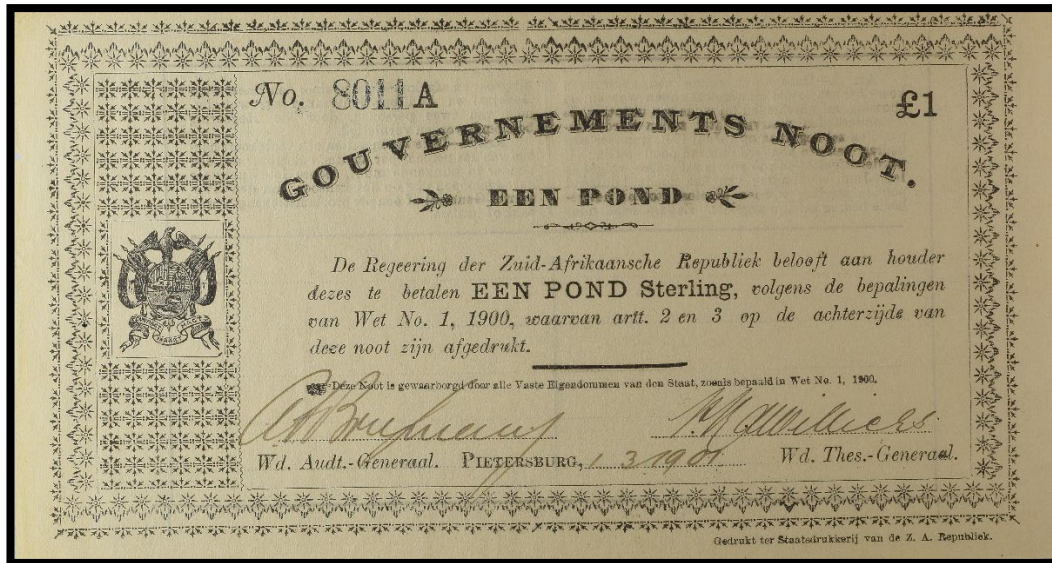 No. 8011 A
£1
GOUVERNEMENTS NOOT.
EEN POND
De Regeering der Zuid-Afrikaansche Republiek belooft aan houder
dezes te betalen EEN POND Sterling, volgens de bepalingen
van Wet No. 1, 1900, waarvan artt. 2 en 3 op de achterzijde van
deze noot zijn afgedrukt.
Deze Noot is gewaarborgd door alle Vaste Eigendommen van den Staat, zooals bepaald in Wet No. 1, 1900.
Wd. Audt.-Generaal. PIETERSBURG, 1 3 1901 Wd. Thes.-Generaal.
Gedrukt ter Staatsdrukkerij van de Z. A. Republiek.